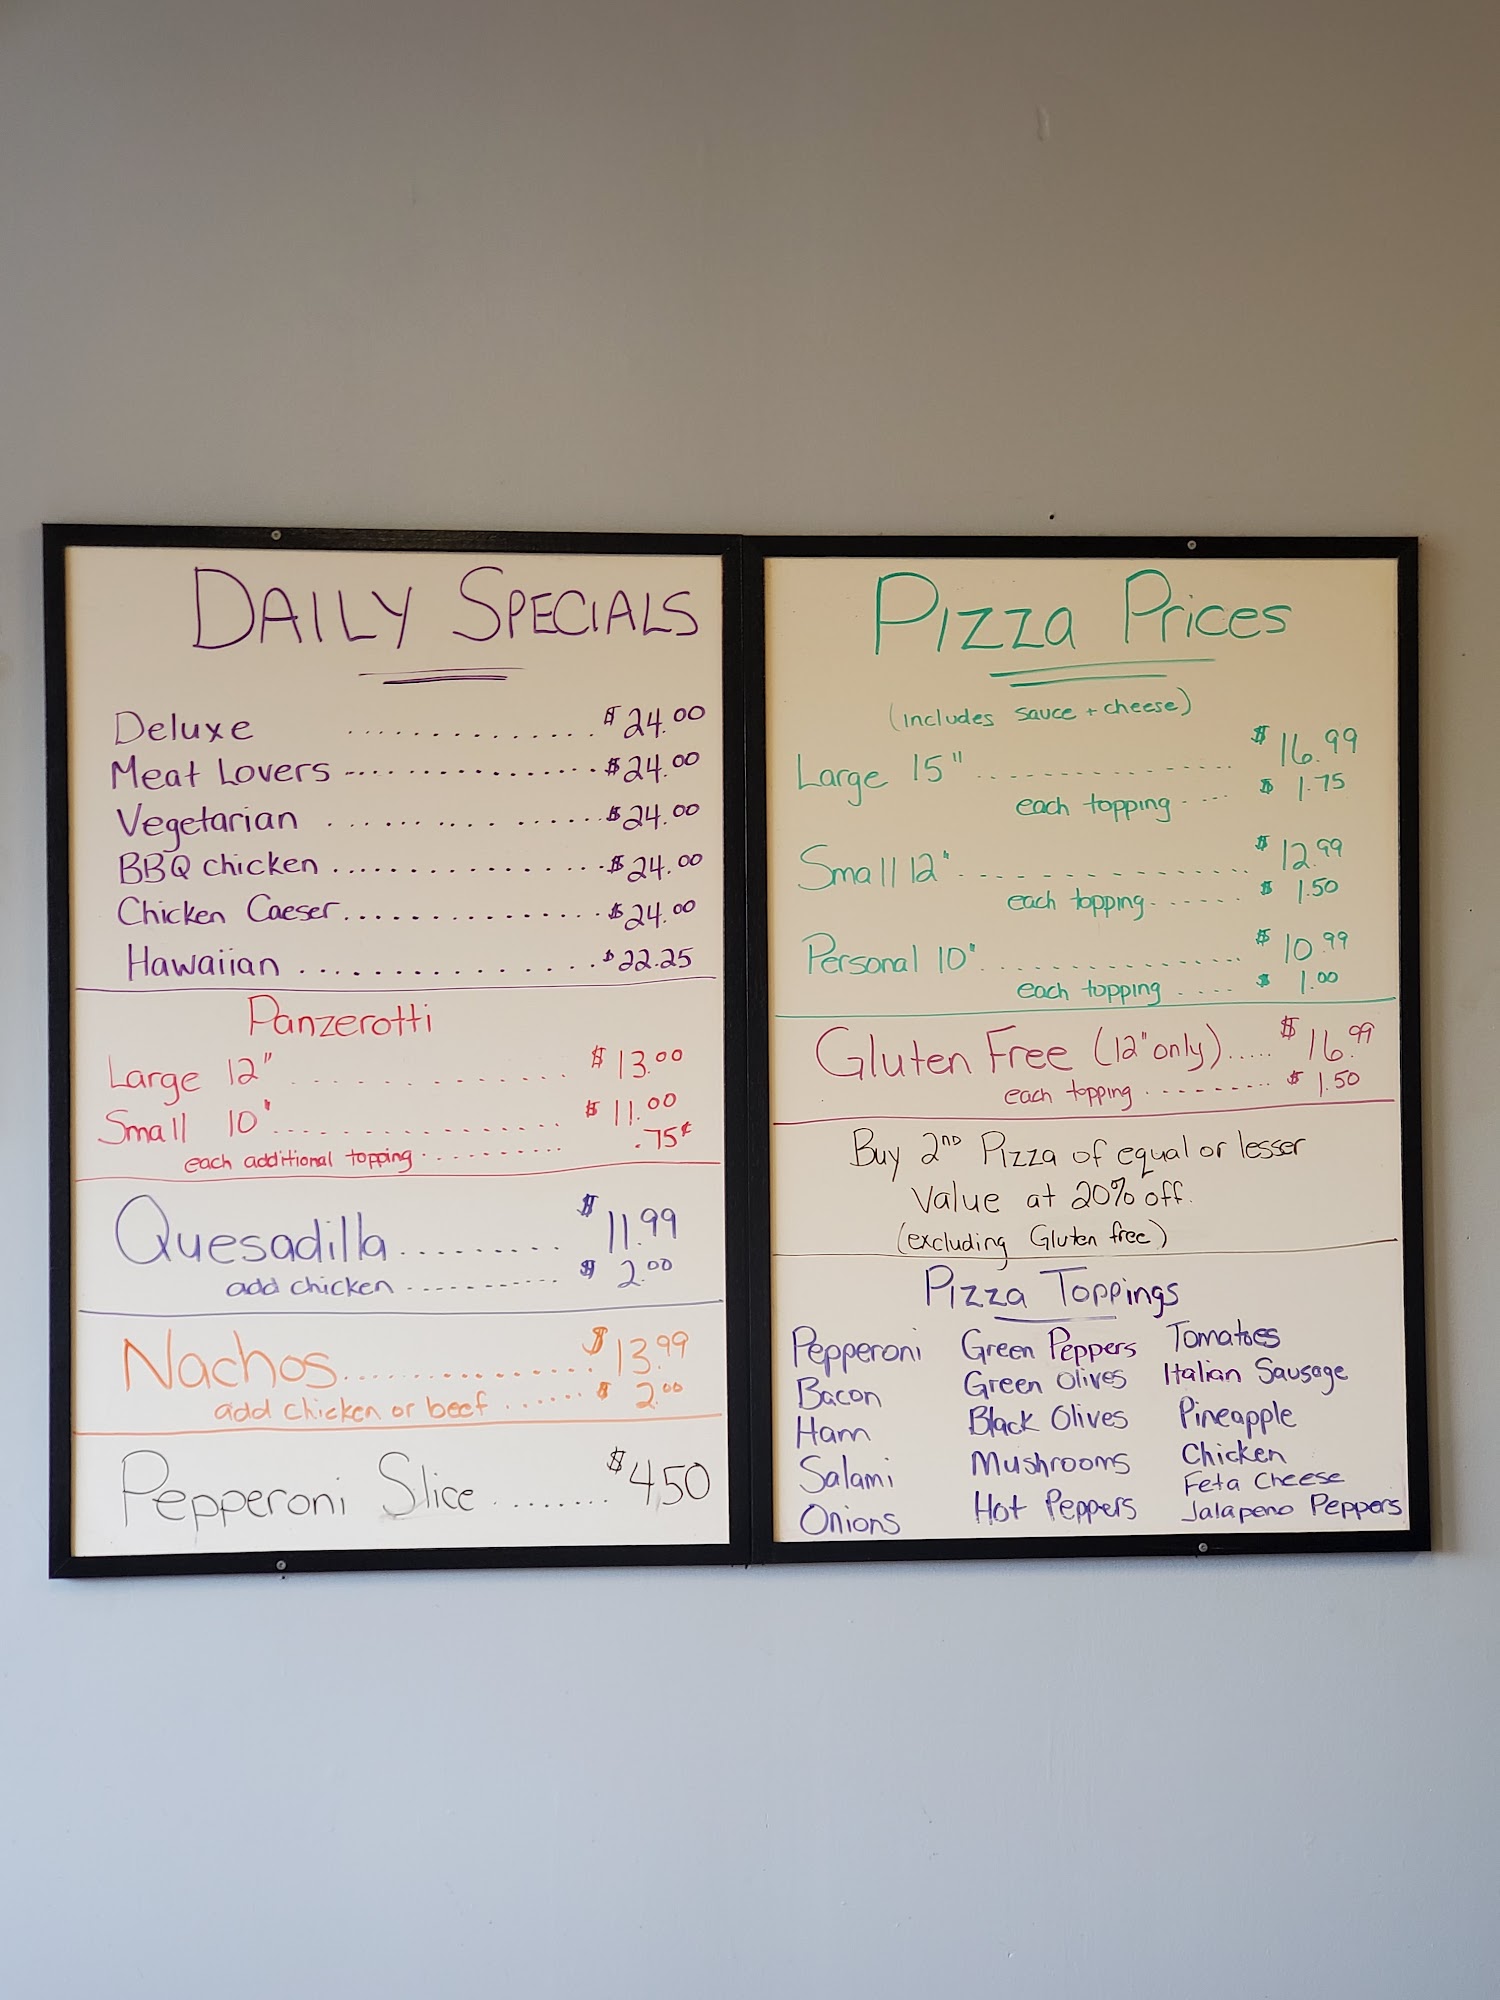 DAILY SPECIALS
Deluxe .............. $24.00
Meat Lovers ................ $24.00
Vegetarian .............. $24.00
BBQ chicken ................ $24.00
Chicken Caeser ................ $24.00
Hawaiian .............. $22.25
Panzerotti
Large 12" .............. $13.00
Small 10" ................ $11.00
each additional topping .......... .75¢
Quesadilla ......... $11.99
add chicken ........... $2.00
Nachos .............. $13.99
add chicken or beef ...... $2.00
Pepperoni Slice ........ $4.50
Pizza Prices
(includes sauce + cheese)
Large 15" .............. $16.99
each topping .... $1.75
Small 12" ................ $12.99
each topping ....... $1.50
Personal 10" ................ $10.99
each topping .... $1.00
Gluten Free (12" only) ..... $16.99
each topping ......... $1.50
Buy 2ND Pizza of equal or lesser
Value at 20% off.
(excluding Gluten free)
Pizza Toppings
Pepperoni Green Peppers Tomatoes
Bacon Green Olives Italian Sausage
Ham Black Olives Pineapple
Salami Mushrooms Chicken
Feta Cheese
Onions Hot Peppers Jalapeno Peppers